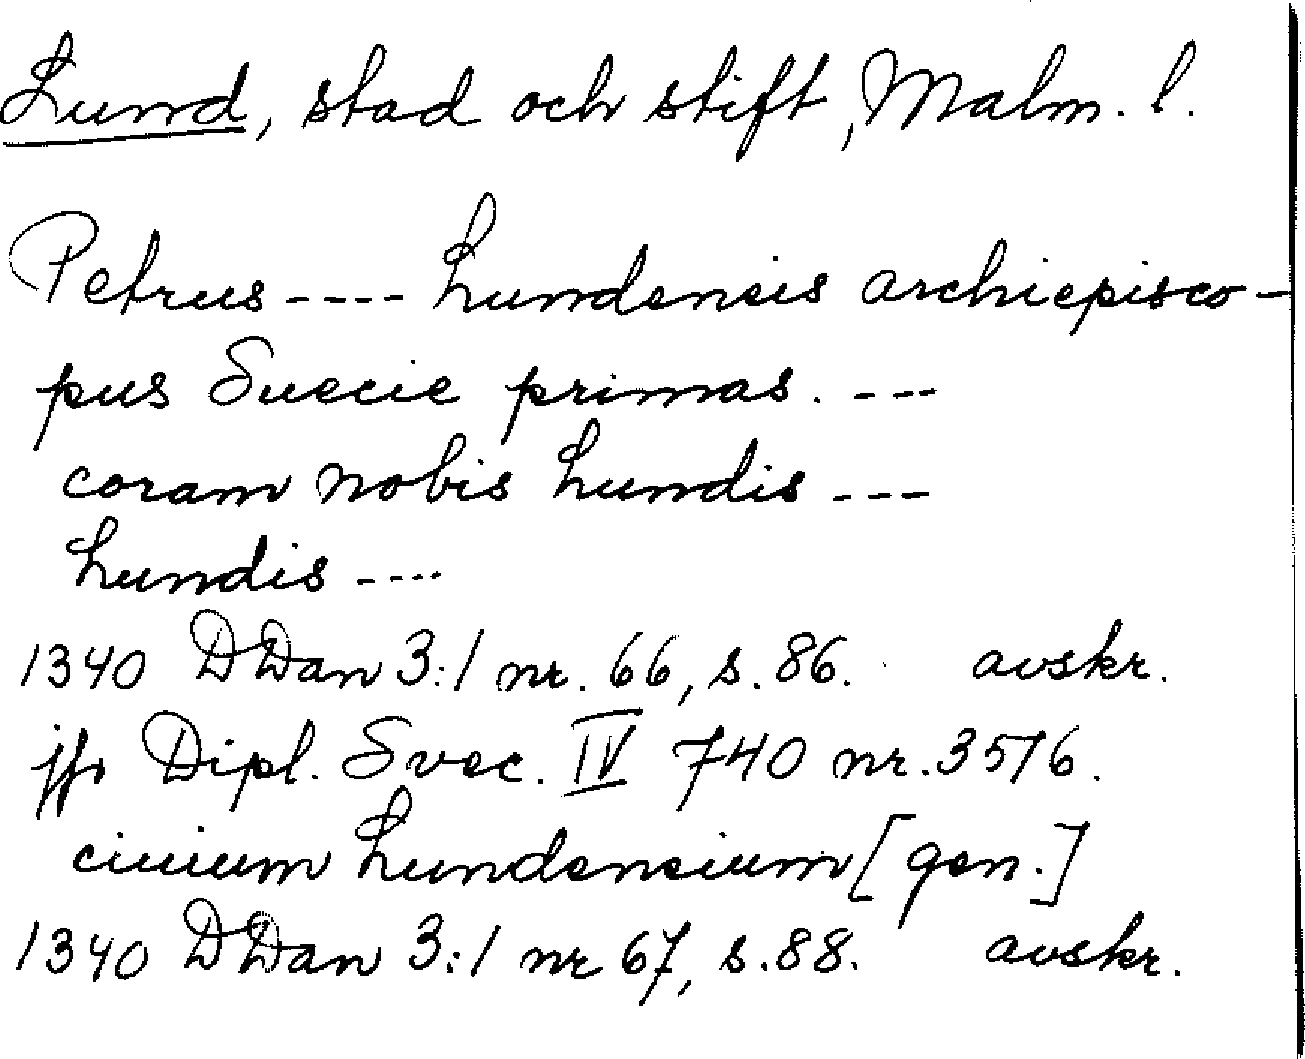 Lund, stad och stift, Malm. l.
Petrus ---- Lundensis archiepisco-
pus Suecie primas. ---
coram nobis Lundis ---
Lundis ----
1340 DDan 3:1 nr. 66, s. 86. avskr.
jfr Dipl. Svec. IV 740 nr. 3516.
ciuium Lundensium [gen.]
1340 DDan 3:1 nr 67, s. 88. avskr.